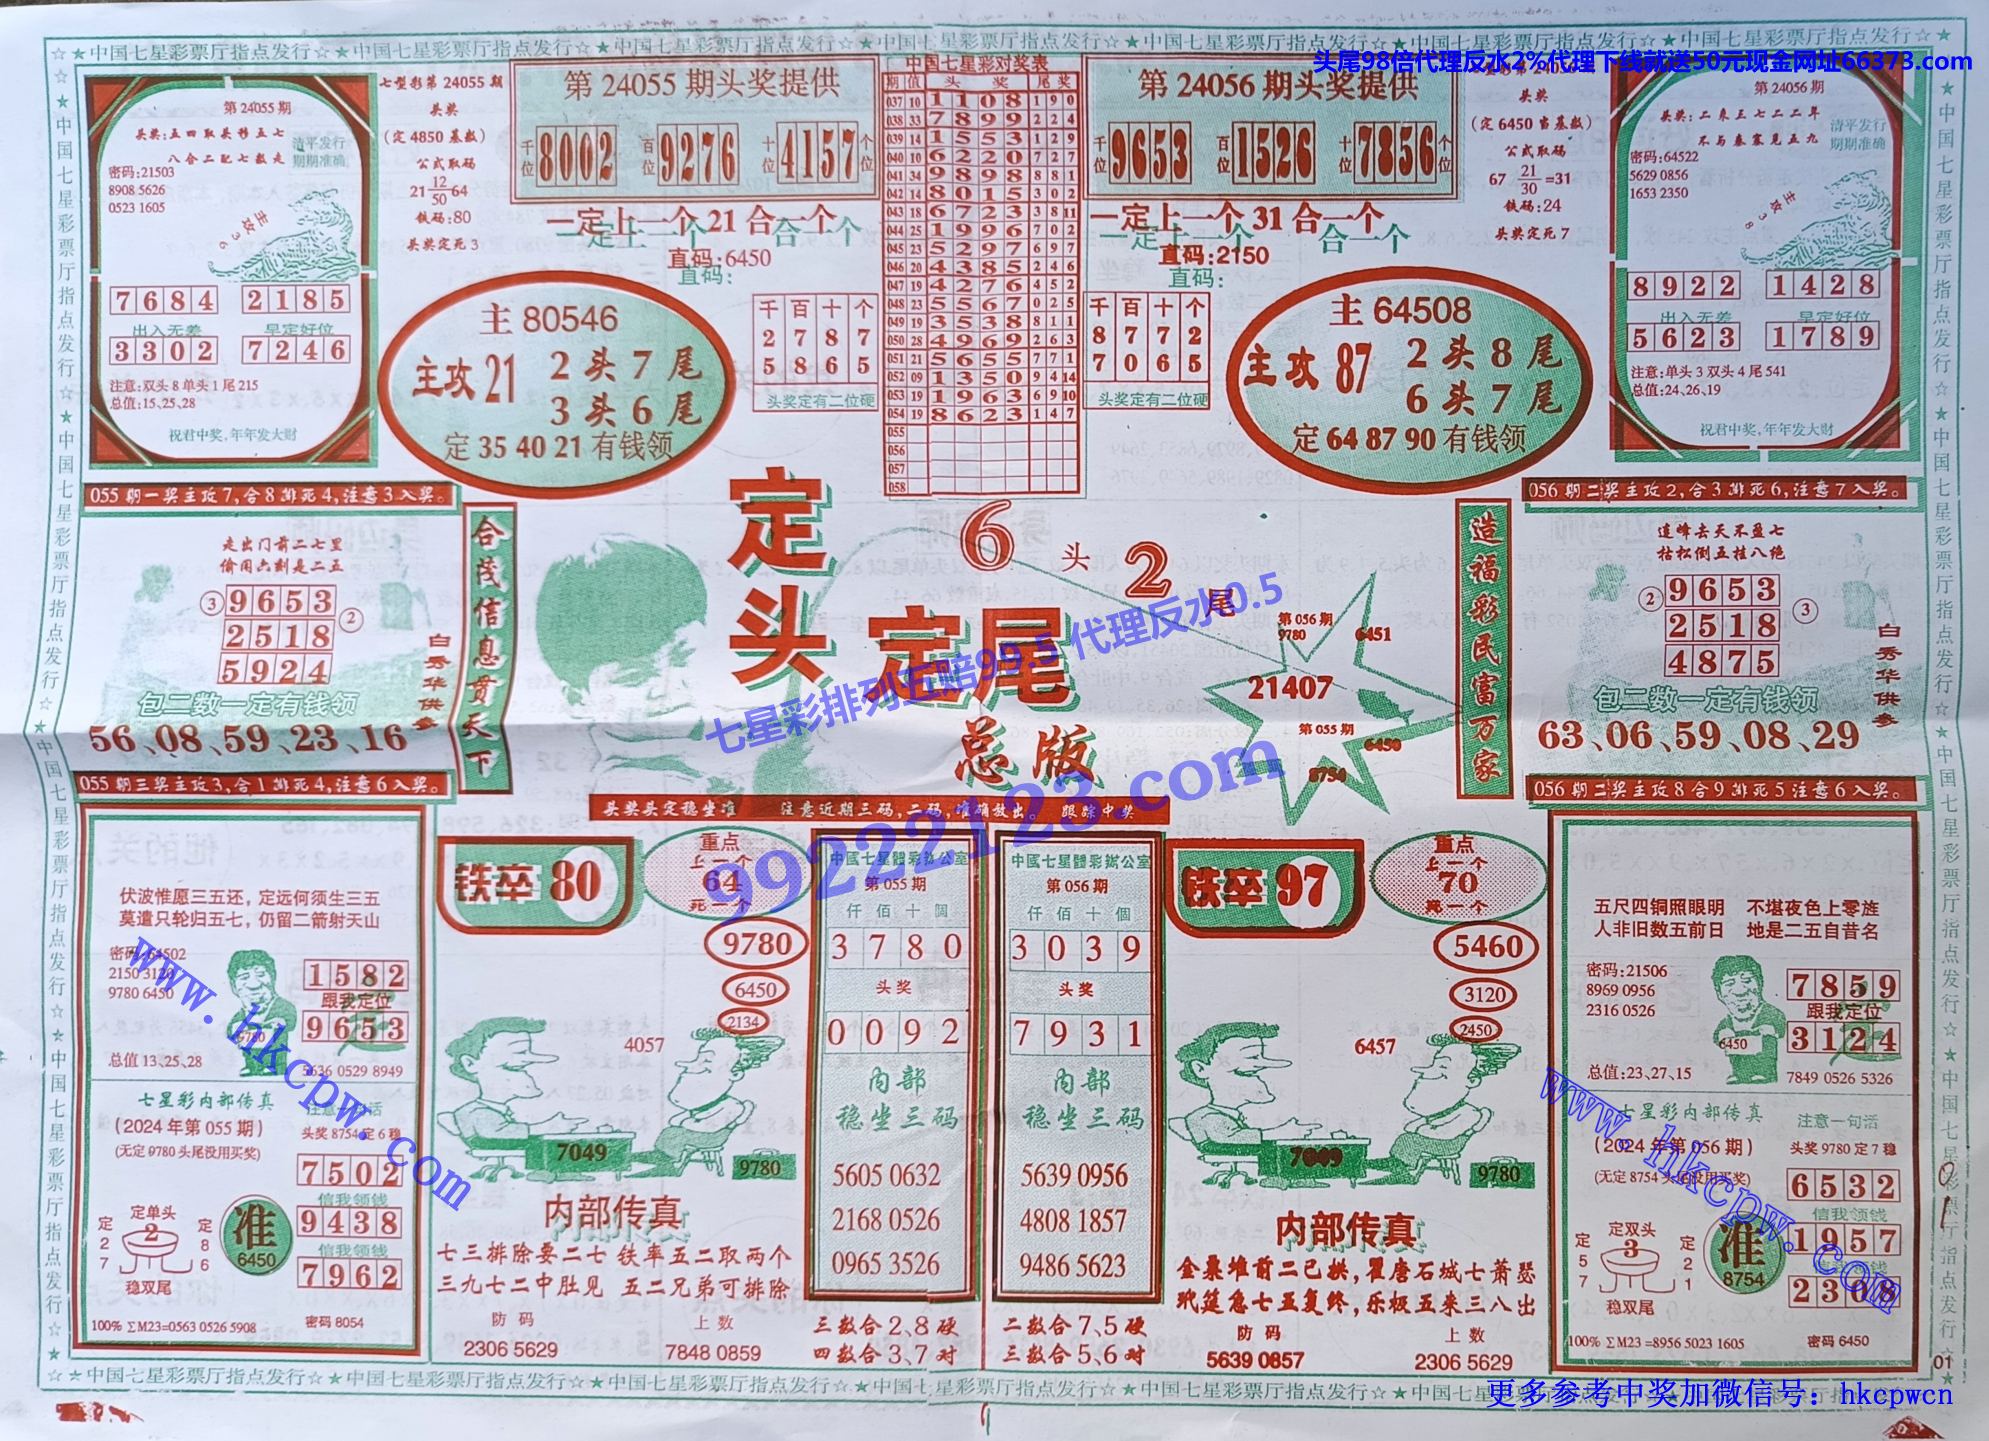 ☆★中国七星彩票厅指点发行☆★中国七星彩票厅指点发行☆★中国七星彩票厅指点发行☆★中国七星彩票厅指点发行☆
头尾98倍代理反水2%代理下线就送50元现金网址66373.com
第 24055 期
头奖:五四取头移五七
八合二配七数走
清平发行
期期准确
密码:21503
8908 5626
0523 1605
主攻36
7684 2185
出入无差 早定好位
3302 7246
注意:双头 8 单头 1 尾 215
总值:15、25、28
祝君中奖,年年发大财
七型彩第 24055 期
头奖
(定 4850 基数)
公式取码
21 12/50 64
铁码:80
头奖定死 3
第 24055 期头奖提供
千位 8002 百位 9276 十位 4157 个位
一定上一个 21 合一个
直码:6450
直码:
主 80546
主攻 21
2 头 7 尾
3 头 6 尾
定 35 40 21 有钱领
千 百 十 个
2 7 8 7
5 8 6 5
头奖定有二位硬
中国七星彩对奖表
期 值 头 奖 尾 奖
037 10 1 1 0 8 1 9 0
038 33 7 8 9 9 2 2 4
039 14 1 5 5 3 1 2 9
040 10 6 2 2 0 7 2 7
041 34 9 8 9 8 8 8 1
042 14 8 0 1 5 3 0 2
043 18 6 7 2 3 3 8 11
044 25 1 9 9 6 7 0 2
045 23 5 2 9 7 6 9 7
046 20 4 3 8 5 2 4 6
047 19 4 2 7 6 4 5 2
048 23 5 5 6 7 0 2 5
049 19 3 5 3 8 8 1 1
050 28 4 9 6 9 2 6 3
051 21 5 6 5 5 7 7 1
052 09 1 3 5 0 9 4 14
053 19 1 9 6 3 6 9 10
054 19 8 6 2 3 1 4 7
055
056
057
058
第 24056 期头奖提供
千位 9653 百位 1526 十位 7856 个位
一定上一个 31 合一个
直码:2150
直码:
千 百 十 个
8 7 7 2
7 0 6 5
头奖定有二位硬
主 64508
主攻 87
2 头 8 尾
6 头 7 尾
定 64 87 90 有钱领
头奖
(定 6450 当基数)
公式取码
67 21/30 =31
铁码:24
头奖定死 7
第 24056 期
头奖:二来三七二二年
不与秦塞见五九
清平发行
期期准确
密码:64522
5629 0856
1653 2350
主攻38
8922 1428
出入无差 早定好位
5623 1789
注意:单头 3 双头 4 尾 541
总值:24、26、19
祝君中奖,年年发大财
055 期一奖主攻 7,合 8 排死 4,注意 3 入奖。
走出门前二七里
偷闲六刻是二五
③ 9653
2518 ②
5924
包二数一定有钱领
56、08、59、23、16
白秀华供参
合茂信息贯天下
定头 定尾
总版
6 头 2 尾
七星彩排列五赔99.5 代理反水0.5
99222123.com
第 056 期
9780
6451
21407
第 055 期
6450
8754
造福彩民富万家
056 期二奖主攻 2,合 3 排死 6,注意 7 入奖。
连峰去天不盈七
枯松倒五挂八绝
② 9653
2518 ③
4875
包二数一定有钱领
63、06、59、08、29
白秀华供参
055 期三奖主攻 3,合 1 排死 4,注意 6 入奖。
头奖奖头定稳坐准 注意近期三码,二码,准确放出。 跟踪中奖
056 期二奖主攻 8 合 9 排死 5 注意 6 入奖。
伏波惟愿三五还,定远何须生三五
莫遣只轮归五七,仍留二箭射天山
密码:64502
2150 3120
9780 6450
1582
跟我定位
9653
9780
总值 13、25、28
5636 0529 8949
www.hkcpw.com
七星彩内部传真
(2024 年第 055 期)
(无定 9780 头尾没用买奖)
注意一句话
头奖 8754 定 6 稳
7502
信我领钱
9438
信我领钱
7962
定单头
2
定 2 7
定 8 6
稳双尾
准
6450
100% ∑M23=0563 0526 5908
密码 8054
铁卒 80
重点
上一个
64
死一个
9780
6450
2134
4057
7049
9780
内部传真
七三排除要二七 铁率五二取两个
三九七二中肚见 五二兄弟可排除
防码
2306 5629
上数
7848 0859
中國七星體彩辦公室
第 055 期
仟 佰 十 個
3780
头奖
0092
内部
稳坐三码
5605 0632
2168 0526
0965 3526
三数合 2、8 硬
四数合 3、7 对
中國七星體彩辦公室
第 056 期
仟 佰 十 個
3039
头奖
7931
内部
稳坐三码
5639 0956
4808 1857
9486 5623
二数合 7、5 硬
三数合 5、6 对
铁卒 97
重点
上一个
70
死一个
5460
3120
2450
6457
7049
9780
内部传真
金粟堆前二已拱,瞿唐石城七萧瑟
玳筵急七五复终,乐极五来三八出
防码
5639 0857
上数
2306 5629
五尺四铜照眼明 不堪夜色上零旌
人非旧数五前日 地是二五自昔名
密码:21506
8969 0956
2316 0526
7859
跟我定位
3124
6450
总值:23、27、15
7849 0526 5326
www.hkcpw.com
七星彩内部传真
(2024 年第 056 期)
(无定 8754 头尾没用买奖)
注意一句话
头奖 9780 定 7 稳
6532
信我领钱
1957
信我领钱
2308
定双头
3
定 5 7
定 2 1
稳双尾
准
8754
100% ∑M23 =8956 5023 1605
密码 6450
01
☆★中国七星彩票厅指点发行☆★中国七星彩票厅指点发行☆★中国七星彩票厅指点发行☆★中国七星彩票厅指点发行☆
更多参考中奖加微信号: hkcpwcn